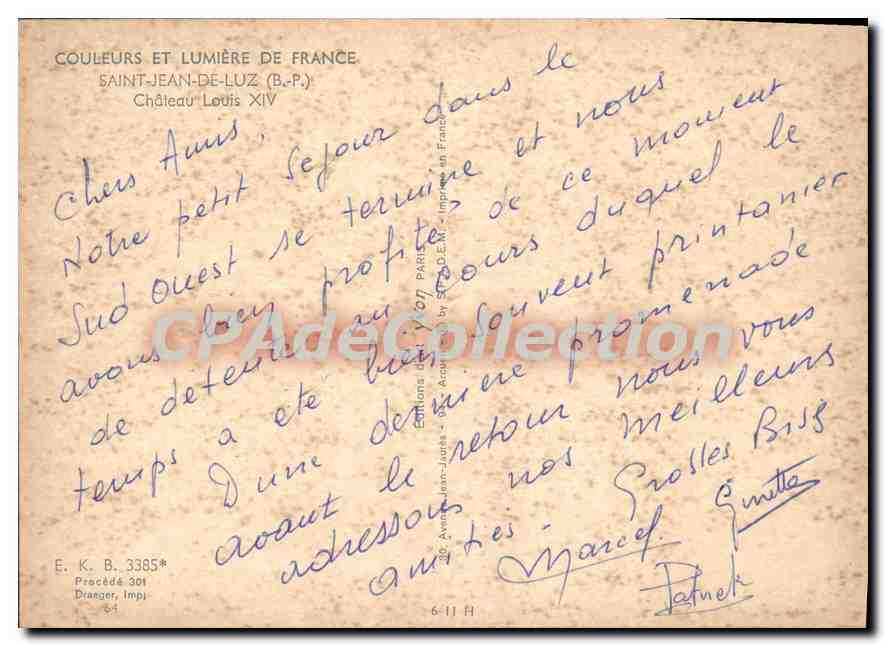 COULEURS ET LUMIÈRE DE FRANCE
SAINT-JEAN-DE-LUZ (B.-P.)
Château Louis XIV
Chers Amis,
Notre petit sejour dans le
Sud Ouest se termine et nous
avons bien profité de ce moment
de detente au cours duquel le
temps a été bien souvent printanier
D'une dernière promenade
avant le retour nous vous
adressons nos meilleurs
amitiés. Grosses Bises
Marcel. Ginette
Patrick
Editions d'art Yvon PARIS
Avenue Jean-Jaurès - Arcueil by S.P.A.D.E.M. - Imprimé en France
E. K. B. 3385*
Procédé 301
Draeger, Imp.
64
6-11 H
CPAdeCollection.com